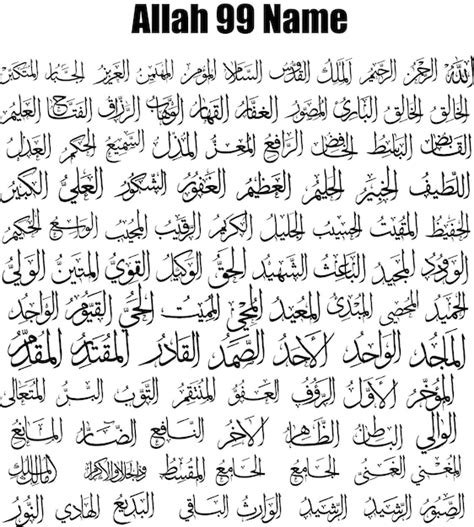 Allah 99 Name
الله الرحمن الرحيم الملك القدوس السلام المؤمن المهيمن العزيز الجبار المتكبر
الخالق الخالق الباري المصور الغفار القهار الوهاب الرزاق الفتاح العليم
القابض الباسط الخافض الرافع المعز المذل السميع الحكم العدل
اللطيف الخبير الحليم العظيم الغفور الشكور العلي الكبير
الحفيظ المقيت الحسيب الجليل الكريم الرقيب المجيب الواسع الحكيم
الودود المجيد الباعث الشهيد الحق الوكيل القوي المتين الولي
الحميد المحصي المبدي المعيد المحيي المميت الحي القيوم الواجد
المجد الواحد الاحد الصمد القادر المقتدر المقدم
المؤخر الأول الرؤوف العفو المنتقم التوب البر المتعال
الوالي الباطن الظاهر الاخر النافع الضار المانع
المغني الغني الجامع الجامع المقسط ذوالجلال والاكرام مالك الملك
الصبور الرشيد الرشيد الوارث الباقي البديع الهادي النور